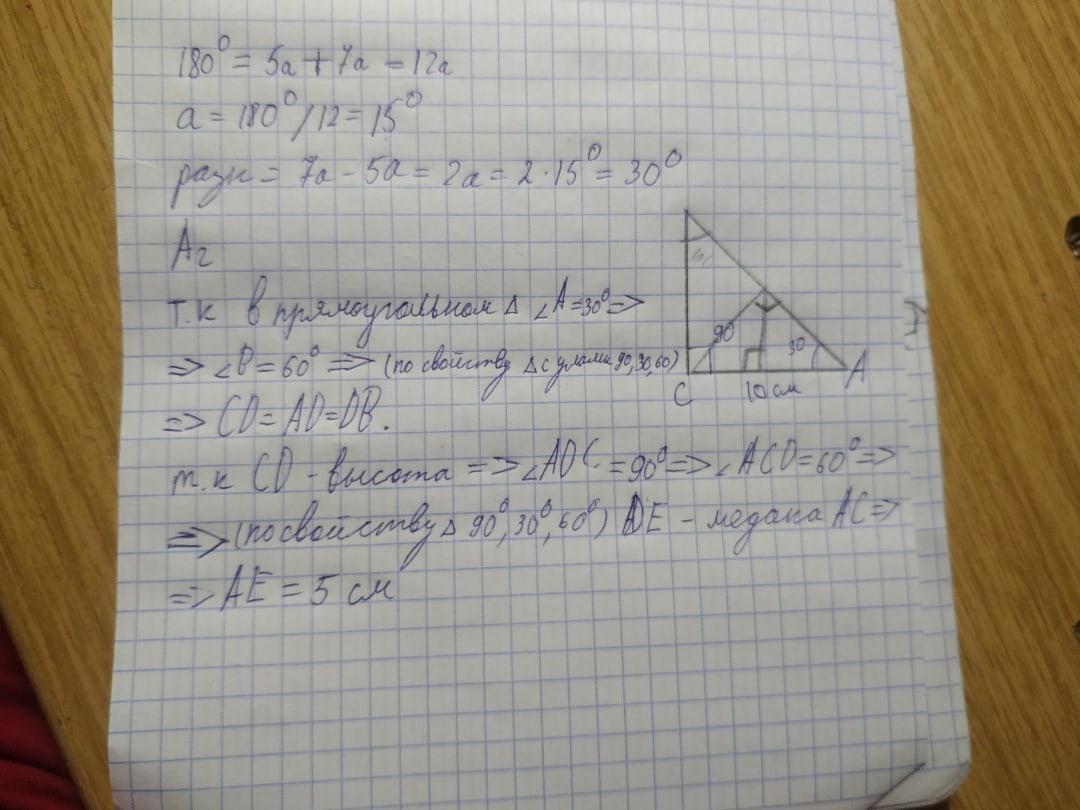 180° = 5a + 7a = 12a
a = 180° / 12 = 15°
разн = 7a - 5a = 2a = 2 · 15° = 30°
A2
т.к в прямоугольном Δ ∠A = 30° =>
=> ∠B = 60° => (по свойству Δ с улами 90, 30, 60)
=> CD = AD = DB.
т.к CD - высота => ∠ADC = 90° => ∠ACD = 60° =>
=> (по свойству Δ 90°, 30°, 60°) DE - медана AC =>
=> AE = 5 см
90
30
C
10 см
A